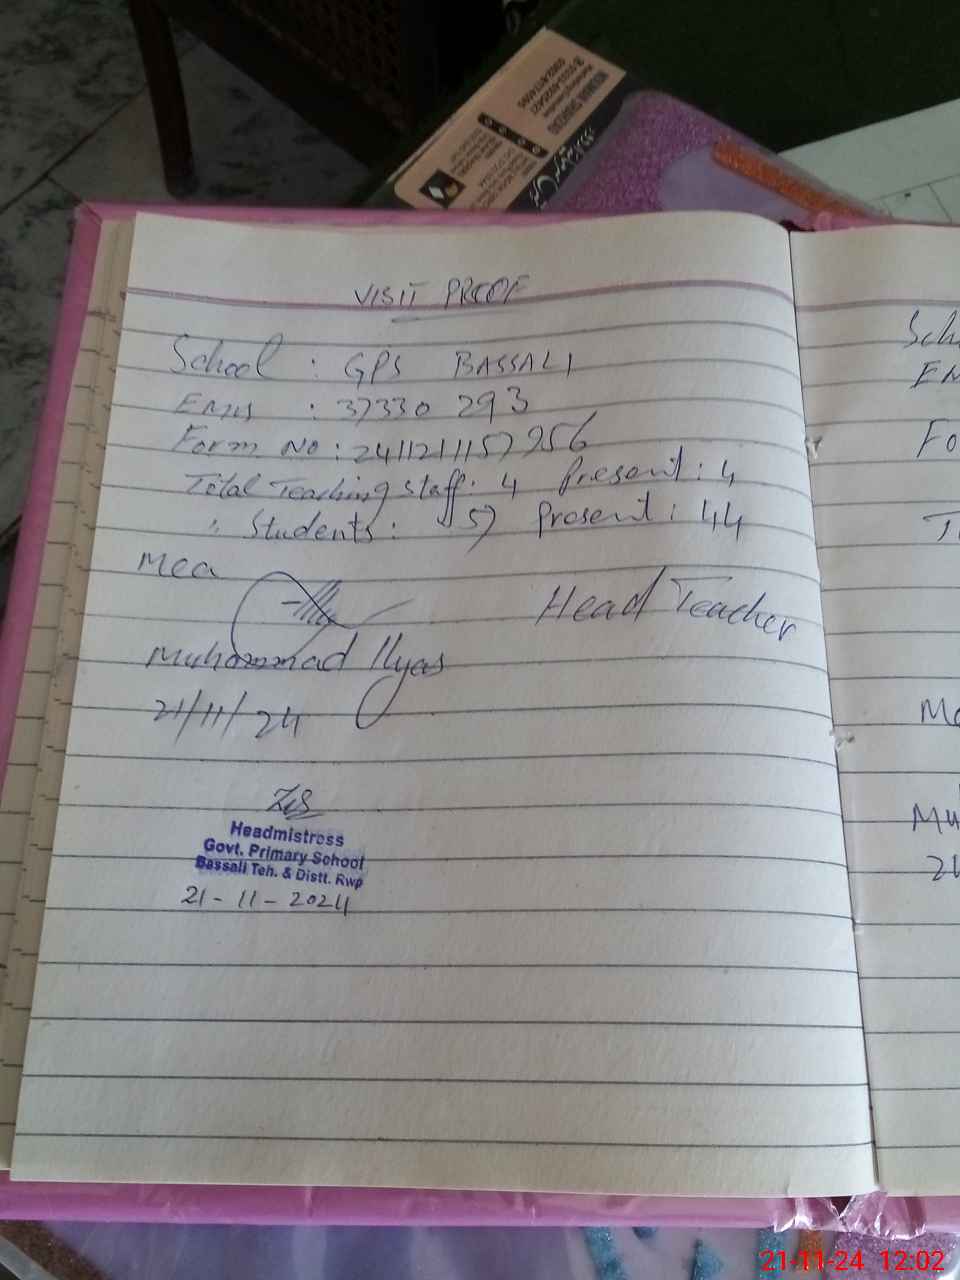 VISIT PROOF
School : GPS BASSALI
EMIS : 37330 293
Form No : 2411211157956
Total Teaching staff: 4 Present: 4
" Students: 57 Present: 44
Mea
Head Teacher
Muhammad Ilyas
21/11/24
Headmistress
Govt. Primary School
Bassali Teh. & Distt. Rwp
21-11-2024
Sch
EM
Fo
T
Me
Mu
21
21-11-24 12:02